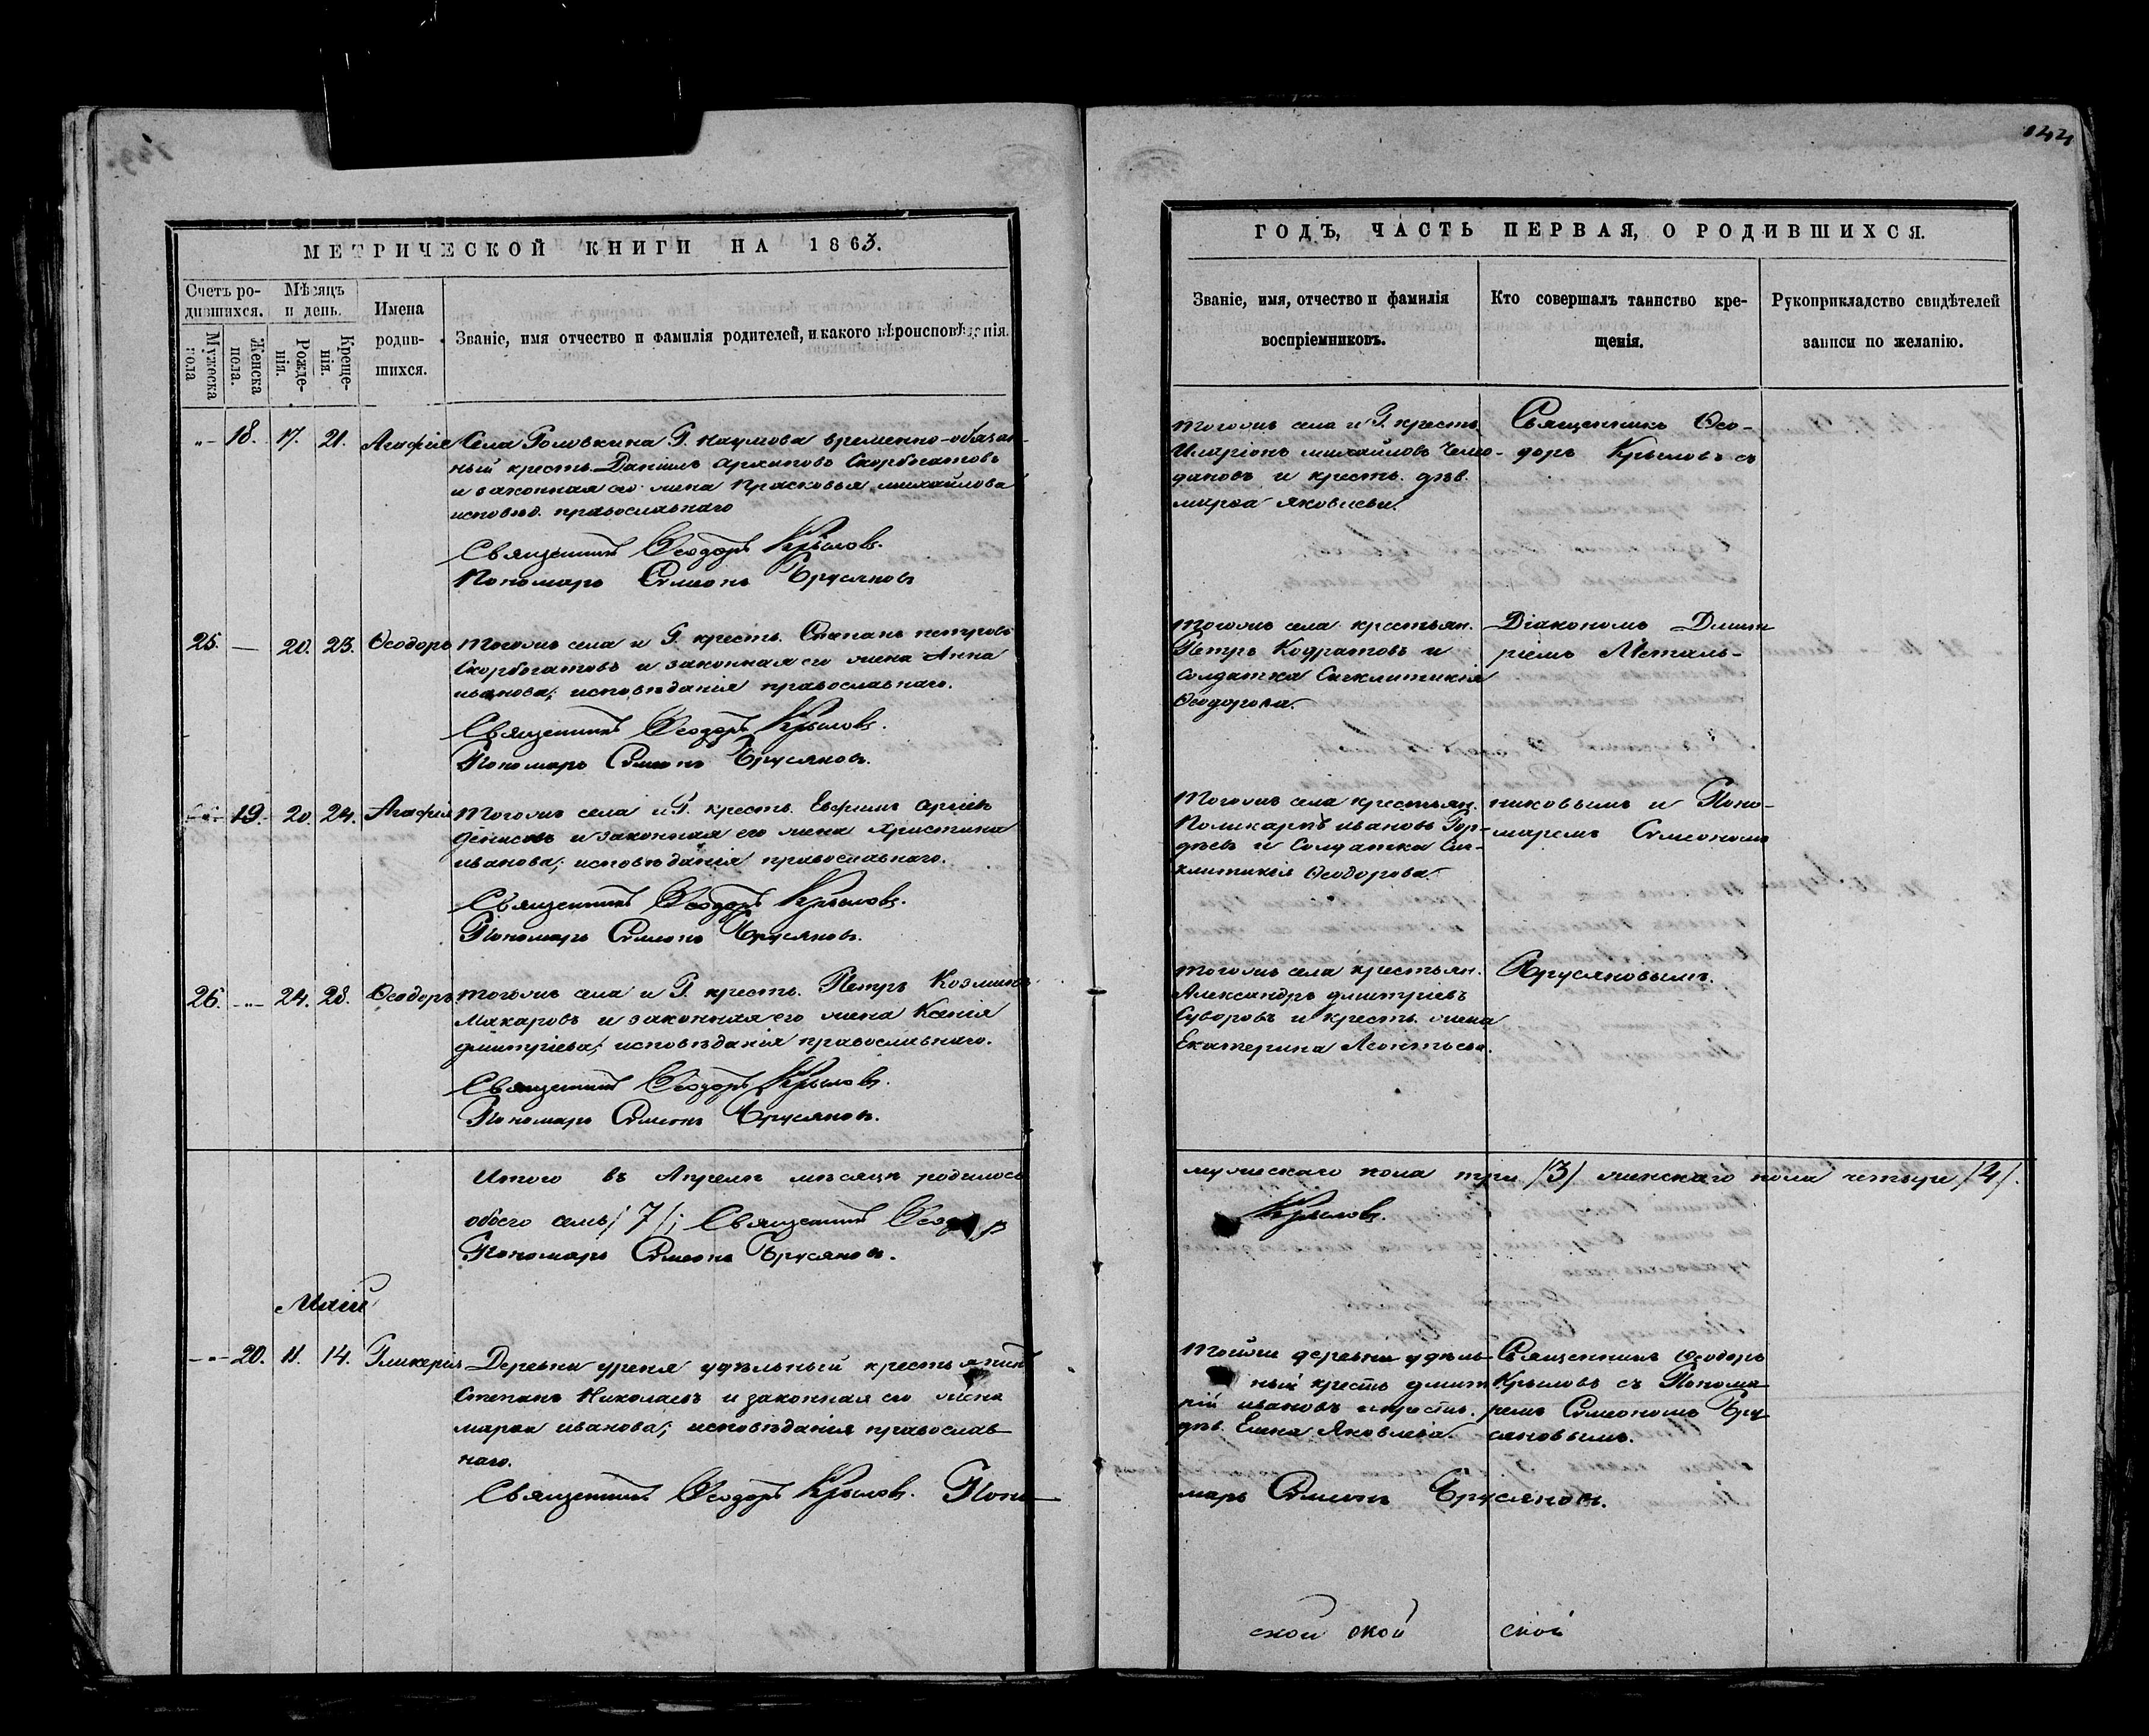 144
МЕТРИЧЕСКОЙ КНИГИ НА 1863.
Счетъ ро-
дившихся.
Мужеска
пола
Женска
пола.
Мѣсяцъ
и день.
Рожде-
нія.
Креще-
нія.
Имена
родив-
шихся.
Званіе, имя отчество и фамилія родителей, и какого вѣроисповѣденія.
18. 17. 21. Агафія Села Головкина Г. Наумова временно-обязан-
ный кресть. Даніилъ Архиповъ Скорбогатовъ
и законная его жена Прасковья Михайлова
исповѣд. православнаго
Священникъ Ѳеодоръ Крыловъ.
Пономарь Симеонъ Брусяновъ
25. — 20. 23. Ѳеодоръ Тогоже села и Г. кресть. Степанъ Петровъ
Скорбогатовъ и законная его жена Анна
Иванова; исповѣданія православнаго.
Священникъ Ѳеодоръ Крыловъ.
Пономарь Симеонъ Брусяновъ.
19. 20. 24. Агафія Тогоже села и Г. кресть. Евфимъ
Денисовъ и законная его жена Христина
Иванова; исповѣданія православнаго.
Священникъ Ѳеодоръ Крыловъ.
Пономарь Симеонъ Брусяновъ.
26. 24. 28. Ѳеодоръ Тогоже села и Г. кресть. Петръ Козминъ
Макаровъ и законная его жена Ксенія
Дмитріева; исповѣданія православнаго.
Священникъ Ѳеодоръ Крыловъ.
Пономарь Симеонъ Брусяновъ.
Итого въ Апрелѣ мѣсяцѣ родилось
обоего семь /7/; Священникъ Ѳеодоръ
Пономарь Симеонъ Брусяновъ.
Маій
20. 11. 14. Гликерія Деревни Уреня удѣльный крестьянинъ
Степанъ Николаевъ и законная его жена
Марѳа Иванова; исповѣданія православ-
наго.
Священникъ Ѳеодоръ Крыловъ. Поно-
ГОДЪ, ЧАСТЬ ПЕРВАЯ, О РОДИВШИХСЯ.
Званіе, имя, отчество и фамилія
воспріемниковъ.
Кто совершалъ таинство кре-
щенія.
Рукоприкладство свидѣтелей
записи по желанію.
Тогоже села и Г. кресть.
Иларіонъ Михайловъ Чемо-
дановъ и кресть. дѣв.
Марѳа Яковлева.
Священникъ Ѳео-
доръ Крыловъ съ
Тогоже села крестьян.
Петръ Кодратовъ и
Солдатка Сигклитикія
Ѳеодорова.
Діакономъ Дмит-
ріемъ Металь-
Тогоже села крестьян.
Поликарпъ Ивановъ Гор-
дѣевъ и Солдатка Сиг-
клитикія Ѳеодорова.
никовымъ и Поно-
маремъ Симеономъ
Тогоже села крестьян.
Александръ Дмитріевъ
Суворовъ и кресть. жена
Екатерина Леонтьева.
Брусяновымъ.
мужескаго пола три /3/ женскаго пола четыре /4/.
Крыловъ.
Тойже деревни удѣль-
ный кресть. Дмит-
рій Ивановъ и кресть.
дѣв. Елена Яковлева.
Священникъ Ѳеодоръ
Крыловъ съ Понома-
ремъ Симеономъ Бру-
сяновымъ.
марь Симеонъ Брусяновъ.
ской ской ской